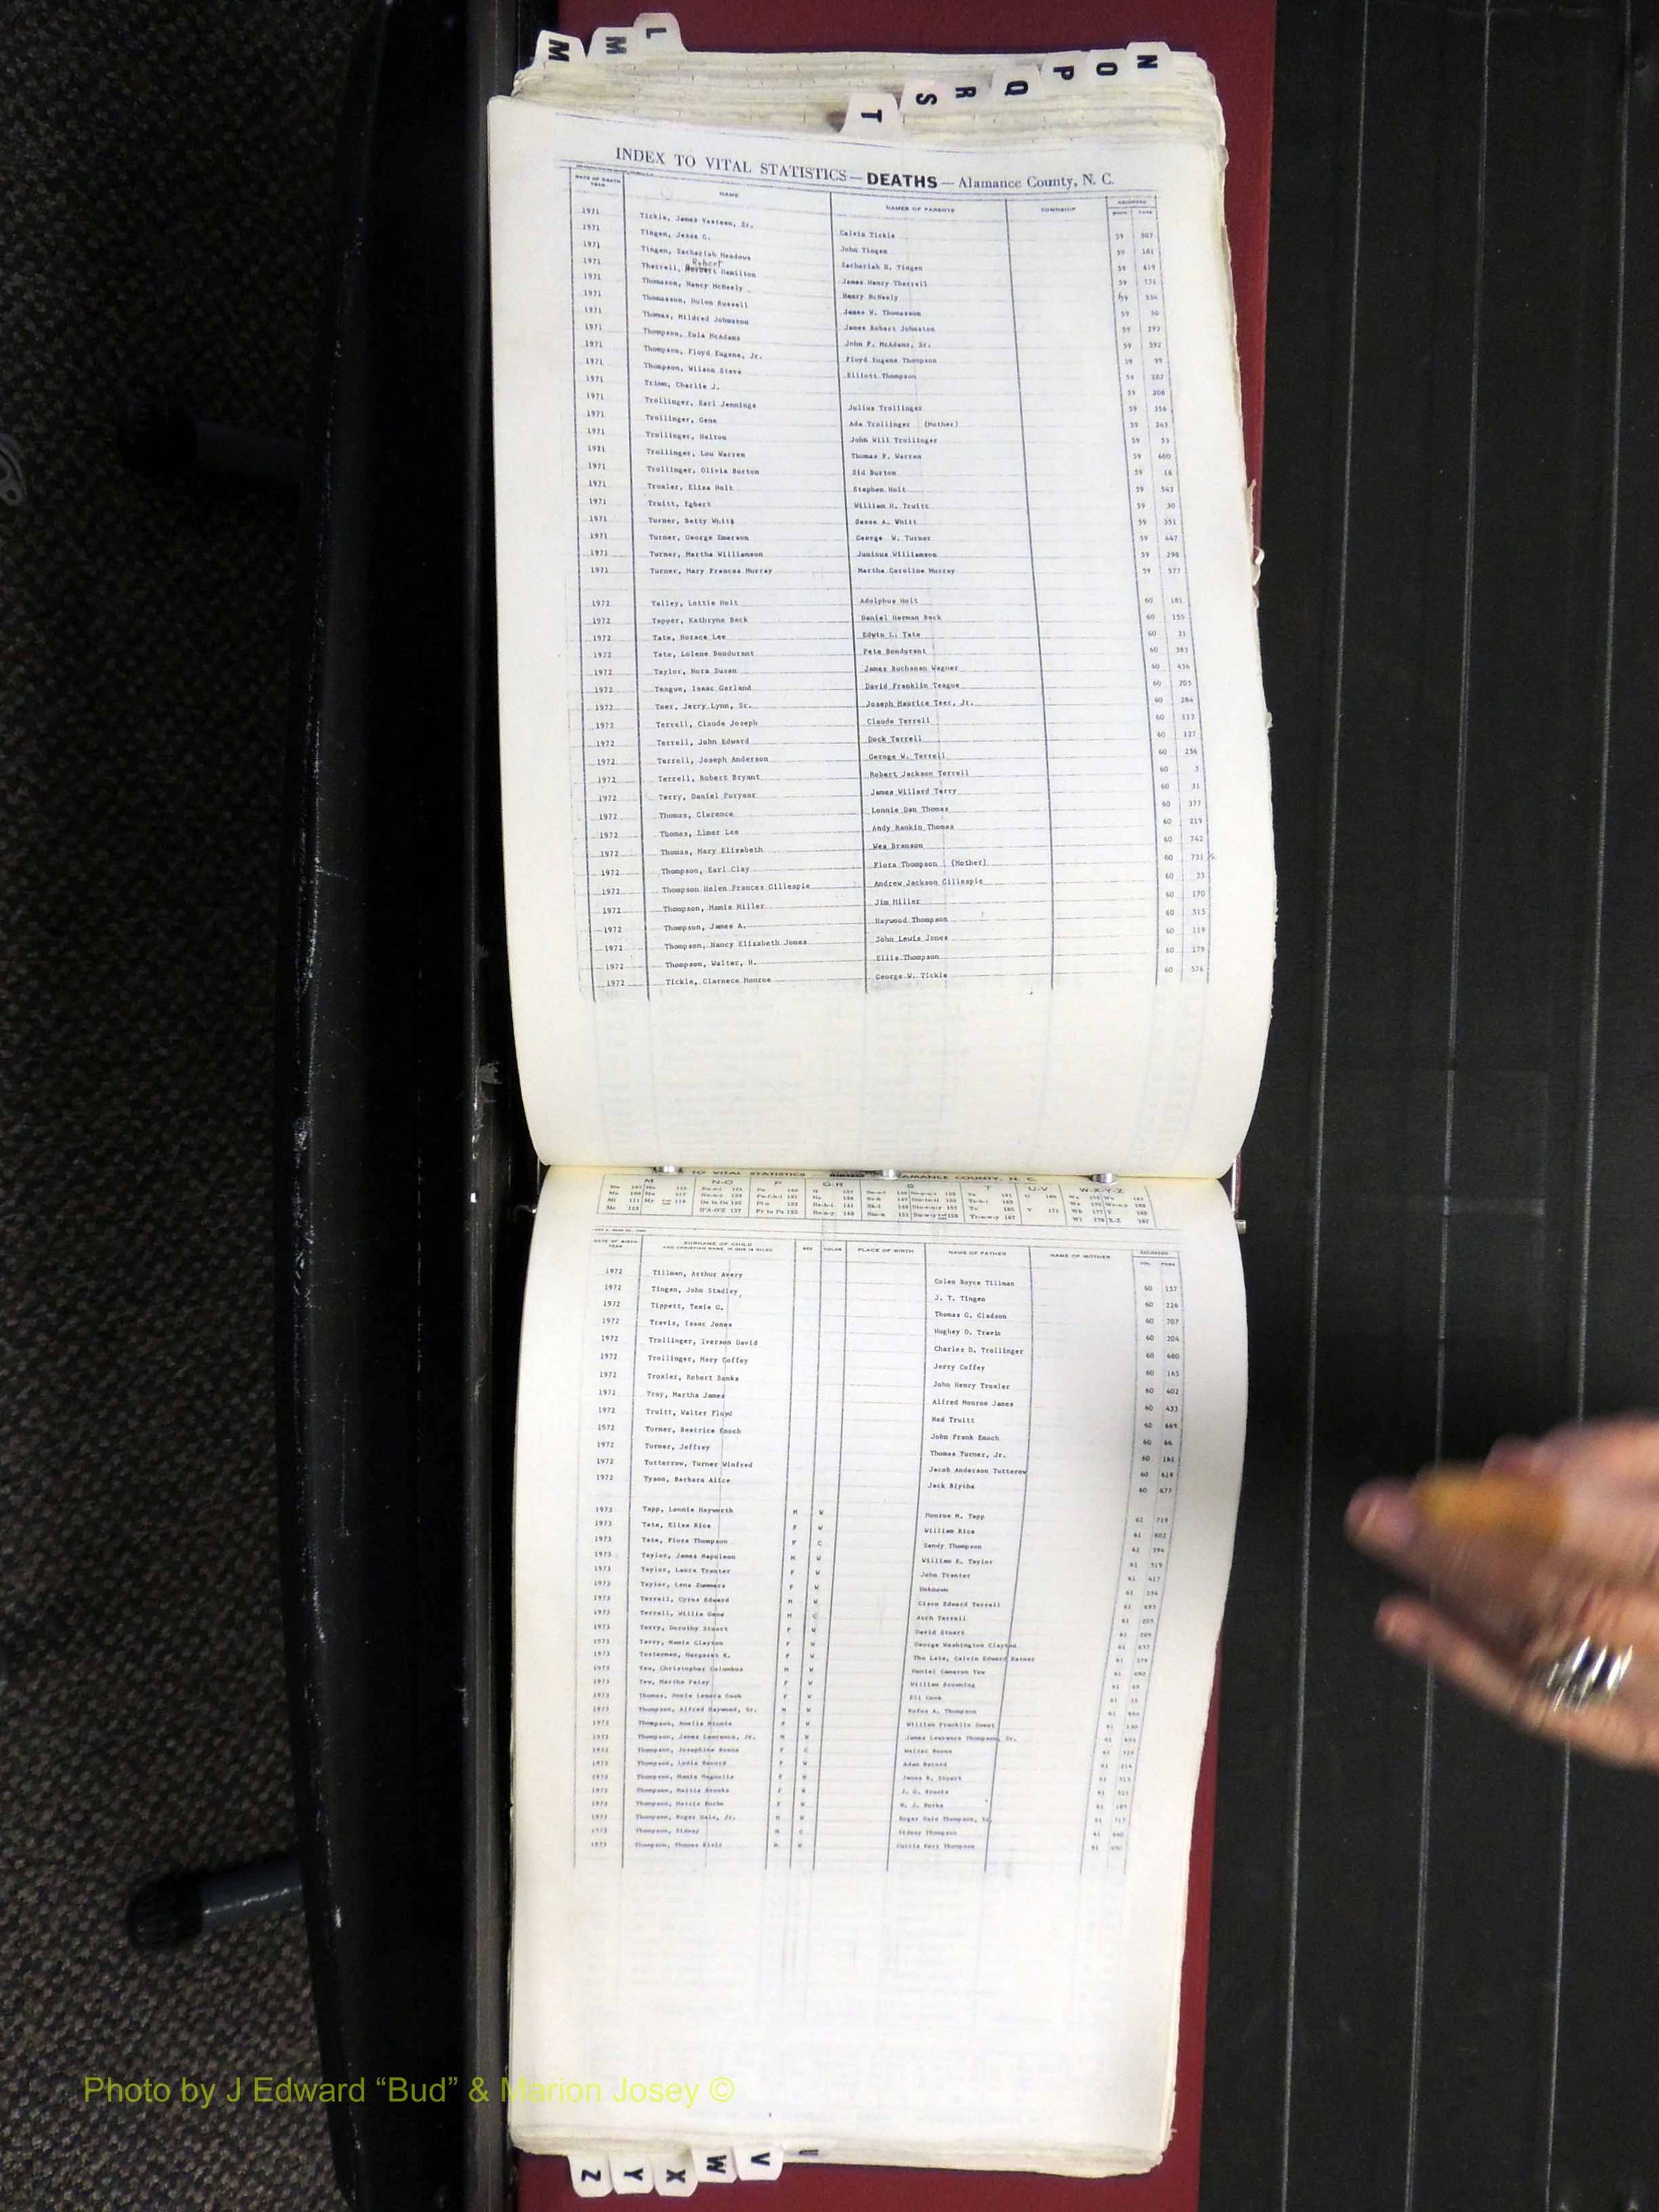 L
M
M
N
O
P
Q
R
S
T
INDEX TO VITAL STATISTICS — DEATHS — Alamance County, N. C.
DATE OF DEATH YEAR NAME NAMES OF PARENTS TOWNSHIP RECORDED BOOK PAGE
1971 Tickle, James Vesteen, Sr. Calvin Tickle 59 507
1971 Tingen, Jesse G. John Tingen 59 181
1971 Tingen, Zachariah Meadows Zachariah H. Tingen 59 619
1971 Therrell, Robert Hamilton James Henry Therrell 59 131
1971 Thomason, Nancy McNeely Henry McNeely 59 534
1971 Thomasson, Dulon Russell James W. Thomasson 59 56
1971 Thomas, Mildred Johnston James Robert Johnston 59 293
1971 Thompson, Eula McAdams John F. McAdams, Sr. 59 592
1971 Thompson, Floyd Eugene, Jr. Floyd Eugene Thompson 59 99
1971 Thompson, Wilson Steve Elliott Thompson 59 282
1971 Trimm, Charlie J. 59 206
1971 Trollinger, Earl Jennings Julius Trollinger 59 356
1971 Trollinger, Gene Ada Trollinger (Mother) 59 243
1971 Trollinger, Halton John Will Trollinger 59 53
1971 Trollinger, Lou Warren Thomas P. Warren 59 600
1971 Trollinger, Olivia Burton Sid Burton 59 16
1971 Troxler, Eliza Holt Stephen Holt 59 543
1971 Truitt, Egbert William H. Truitt 59 30
1971 Turner, Betty Whitt A. Whitt 59 351
1971 Turner, George Emerson George W. Turner 59 447
1971 Turner, Martha Williamson Junious Williamson 59 298
1971 Turner, Mary Frances Murray Martha Caroline Murray 59 577
1972 Talley, Lottie Holt Adolphus Holt 60 181
1972 Tapper, Kathryne Beck Daniel Herman Beck 60 155
1972 Tate, Horace Lee Edwin L. Tate 60 21
1972 Tate, Lolene Bondurant Pete Bondurant 60 383
1972 Taylor, Nora Susan James Buchanan Wagner 60 436
1972 Teague, Isaac Garland David Franklin Teague 60 205
1972 Teer, Jerry Lynn, Sr. Joseph Maurice Teer, Jr. 60 284
1972 Terrell, Claude Joseph Claude Terrell 60 112
1972 Terrell, John Edward Dock Terrell 60 127
1972 Terrell, Joseph Anderson Geroge W. Terrell 60 256
1972 Terrell, Robert Bryant Robert Jackson Terrell 60 3
1972 Terry, Daniel Puryear James Willard Terry 60 31
1972 Thomas, Clarence Lonnie Dan Thomas 60 377
1972 Thomas, Elmer Lee Andy Rankin Thomas 60 219
1972 Thomas, Mary Elizabeth Wes Branson 60 742
1972 Thompson, Earl Clay Flora Thompson (Mother) 60 731½
1972 Thompson Helen Frances Gillespie Andrew Jackson Gillespie 60 33
1972 Thompson, Mamie Miller Jim Miller 60 170
1972 Thompson, James A. Haywood Thompson 60 315
1972 Thompson, Nancy Elizabeth Jones John Lewis Jones 60 119
1972 Thompson, Walter, H. Ellis Thompson 60 179
1972 Tickle, Clarnece Monroe George W. Tickle 60 576
TO VITAL STATISTICS ALAMANCE COUNTY, N. C.
M N-O P Q-R S T U-V W-X-Y-Z
DATE OF BIRTH YEAR SURNAME OF CHILD AND CHRISTIAN NAME, IF ONE IS GIVEN SEX COLOR PLACE OF BIRTH NAME OF FATHER NAME OF MOTHER RECORDED VOL. PAGE
1972 Tillman, Arthur Avery Colen Boyce Tillman 60 157
1972 Tingen, John Stadley J. T. Tingen 60 226
1972 Tippett, Texie G. Thomas G. Gladson 60 707
1972 Travis, Isaac Jones Hughey D. Travis 60 204
1972 Trollinger, Iverson David Charles D. Trollinger 60 680
1972 Trollinger, Mary Coffey Jerry Coffey 60 165
1972 Troxler, Robert Banks John Henry Troxler 60 402
1972 Troy, Martha James Alfred Monroe James 60 433
1972 Truitt, Walter Floyd Ned Truitt 60 669
1972 Turner, Beatrice Enoch John Frank Enoch 60 66
1972 Turner, Jeffrey Thomas Turner, Jr. 60 161
1972 Tutterrow, Turner Winfred Jacob Anderson Tutterow 60 619
1972 Tyson, Barbara Alice Jack Blythe 60 677
1973 Tapp, Lonnie Hayworth M W Monroe M. Tapp 61 719
1973 Tate, Eliza Rice F W William Rice 61 602
1973 Tate, Flora Thompson F C Sandy Thompson 61 394
1973 Taylor, James Napoleon M W William E. Taylor 61 519
1973 Taylor, Laura Tranter F W John Tranter 61 417
1973 Taylor, Lena Summers F W Unknown 61
1973 Terrell, Cyrus Edward M W Cisco Edward Terrell 61
1973 Terrell, Willie Gene M C Arch Terrell 61 205
1973 Terry, Dorothy Stuart F W David Stuart 61
1973 Terry, Mamie Clayton F W George Washington Clayton 61 637
1973 Testerman, Margaret R. F W The Late, Calvin Edward 61
1973 Tew, Christopher Columbus M W Daniel Cameron Tew 61
1973 Tew, Martha Patsy F W William Browning 61
1973 Thomas, Lenora Cook F W Eli Cook 61
1973 Thompson, Alfred Haywood, Sr. M W Rufus A. Thompson 61
1973 Thompson, Amelia Minnie F W William Franklin Sweet 61
1973 Thompson, James Lawrence, Jr. M W James Lawrence Thompson, Sr. 61
1973 Thompson, Josephine Boone F C Walter Boone 61
1973 Thompson, Lydia Record F W Adam Record 61
1973 Thompson, Mamie Magnolia F W James R. Stuart 61
1973 Thompson, Mattie Brooks F W J. C. Brooks 61
1973 Thompson, Mattie Burke F W W. J. Burke 61
1973 Thompson, Roger Dale, Jr. M W Roger Dale Thompson, Sr. 61 717
1973 Thompson, Sidney M C Sidney Thompson 61
1973 Thompson, Thomas M W Thompson 61
Photo by J Edward “Bud” & Marion Josey ©
Z
Y
X
W
V